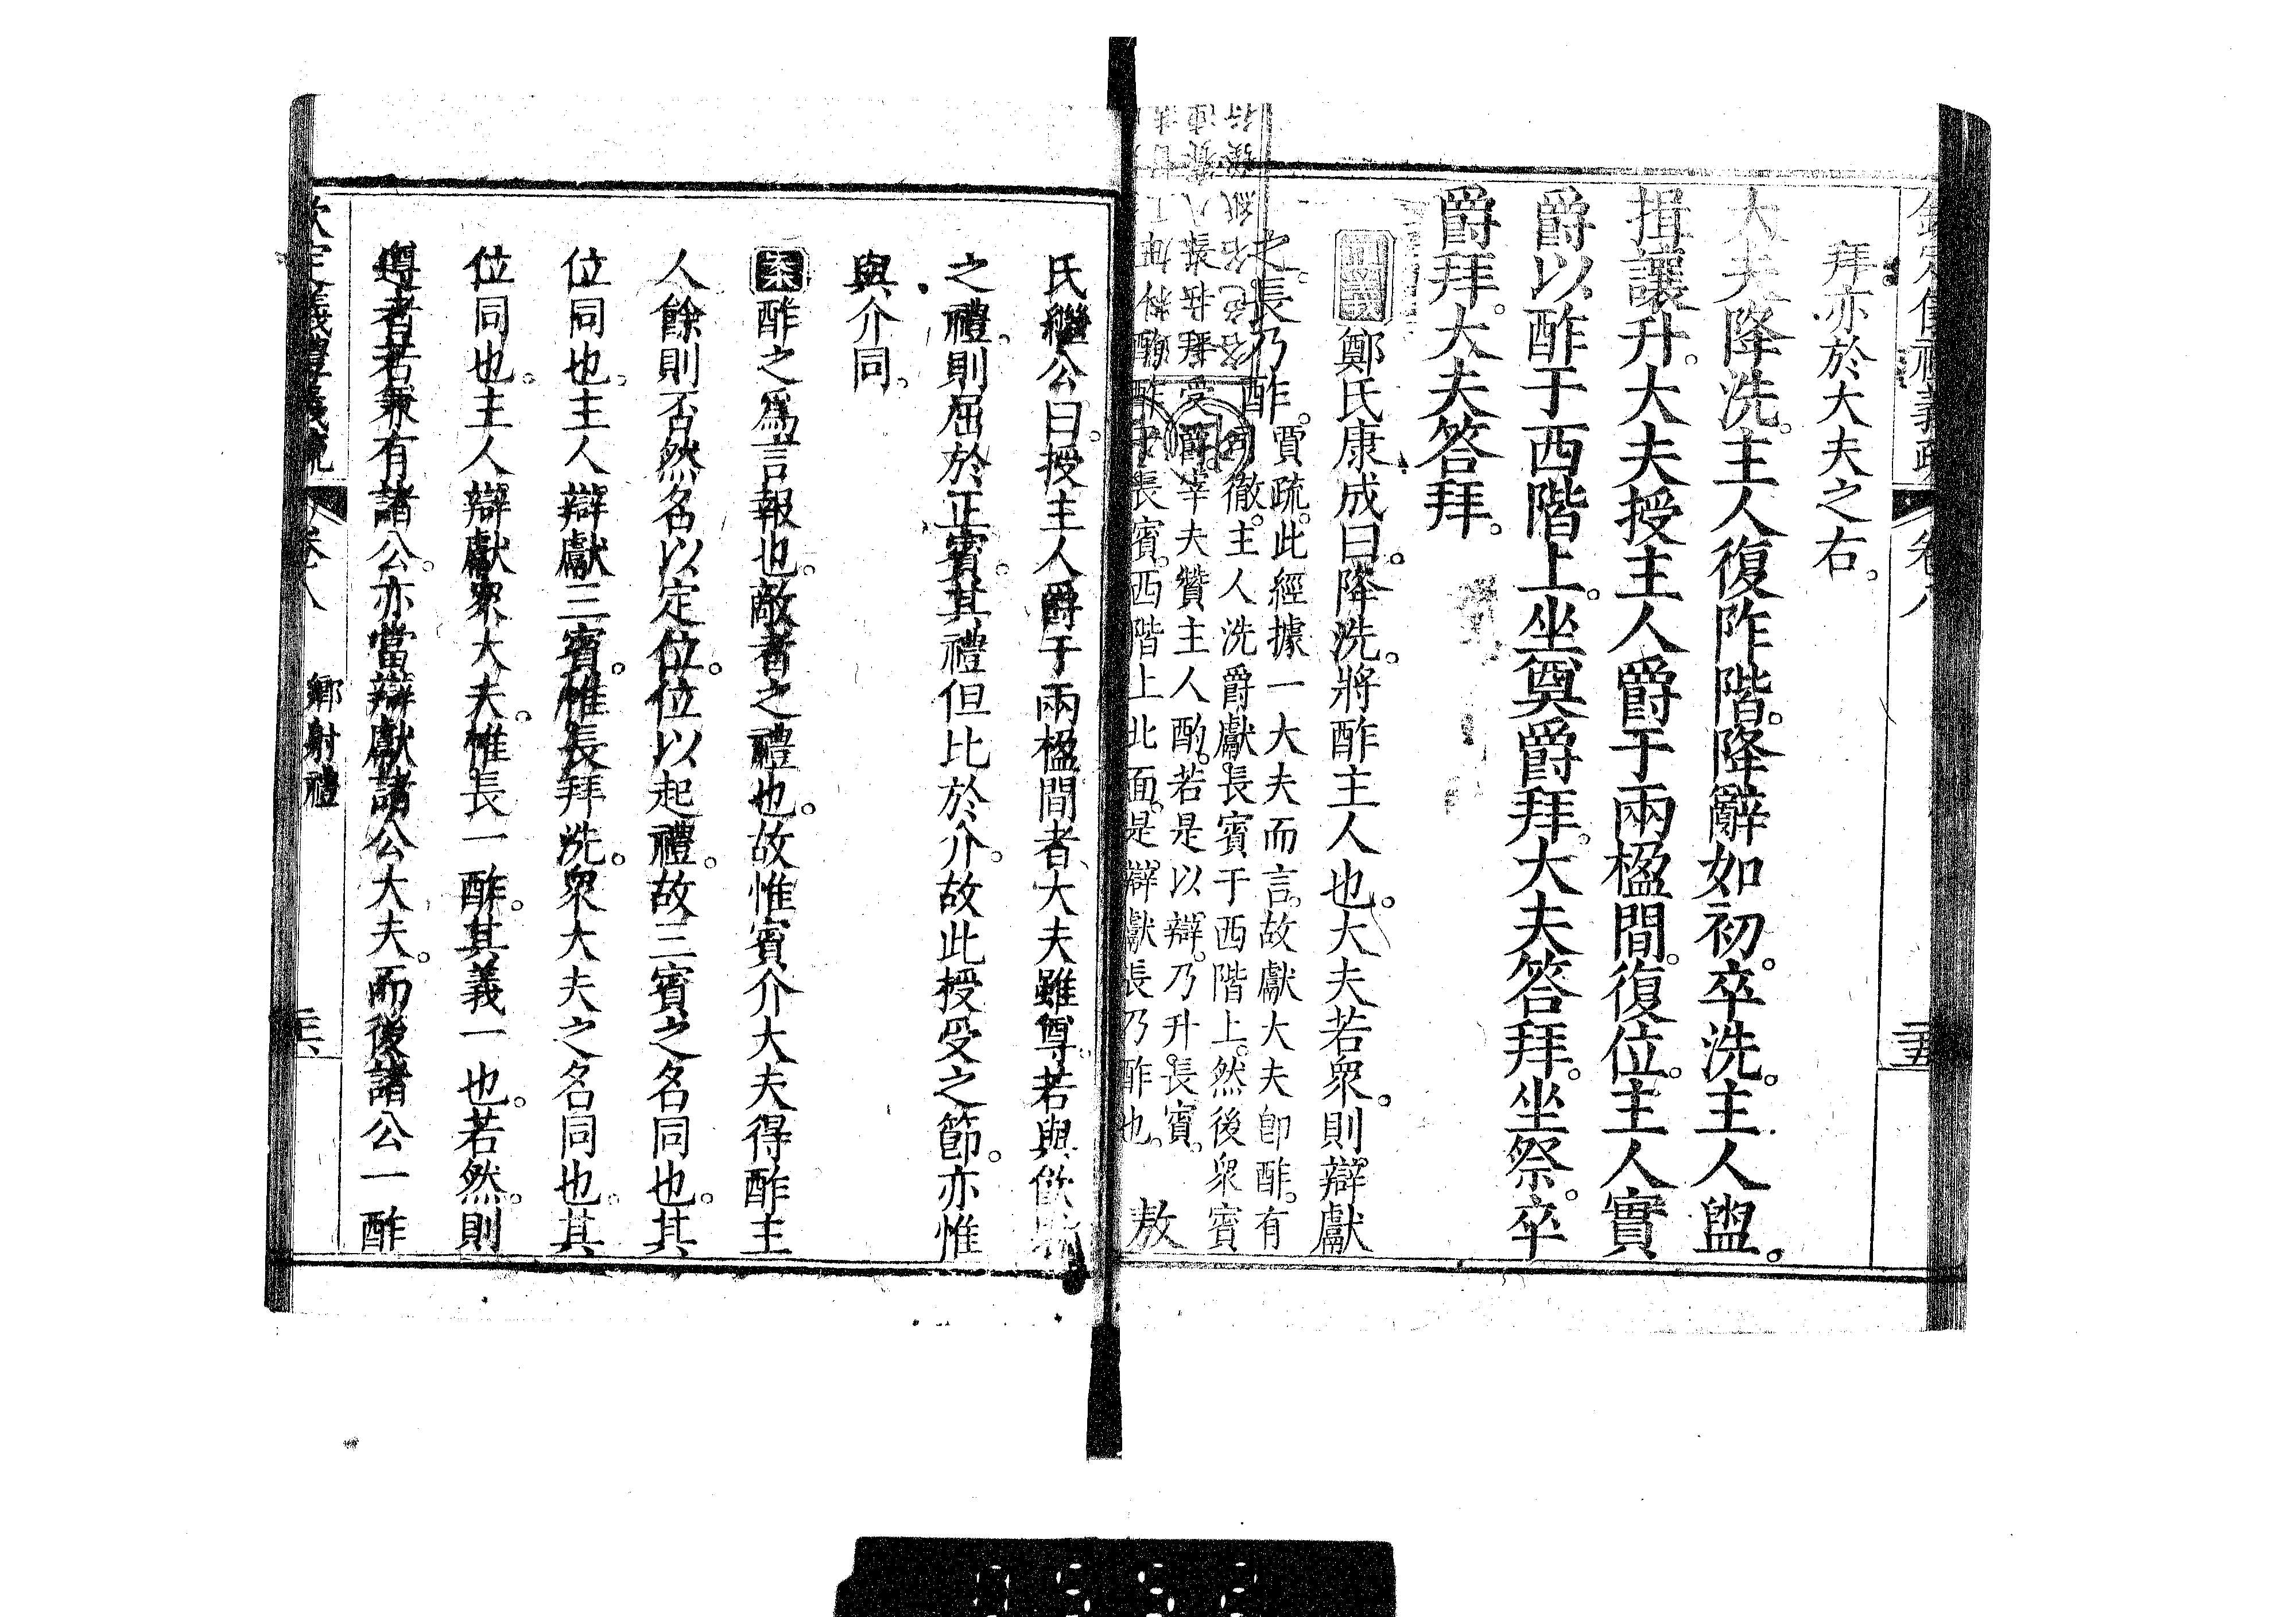 拜。亦於大夫之右。
大夫降洗。主人復阼階。降辭如初。卒洗。主人盥。
揖讓升。大夫授主人爵于兩楹間。復位。主人實
爵以酢于西階上。坐奠爵拜。大夫答拜。坐祭。卒
爵拜。大夫答拜。
鄭氏康成曰。降洗。將酢主人也。大夫若衆。則辯獻
之。長乃酢。
賈疏。此經據一大夫而言。故獻大夫卽酢。有
徹。主人洗爵獻長賓于西階上。然後衆賓
長拜受爵。宰夫贊主人酌。若是以辯。乃升長賓。
酌酢于長賓。西階上北面。是辯獻長乃酢也。
敖
氏繼公曰。授主人爵于兩楹間者、大夫雖尊。若與
之禮。則屈於正賓。其禮但比於介。故此授受之節。亦惟
與介同。
案酢之爲言報也。敵者之禮也。故惟賓介大夫得酢主
人餘則否。然名以定位。位以起禮。故三賓之名同也。其
位同也。主人辯獻三賓。惟長拜洗。衆大夫之名同也。其
位同也。主人辯獻衆大夫。惟長一酢。其義一也。若然。則
遵者若兼有諸公。亦當辯獻諸公大夫。而後諸公一酢
鄉射禮